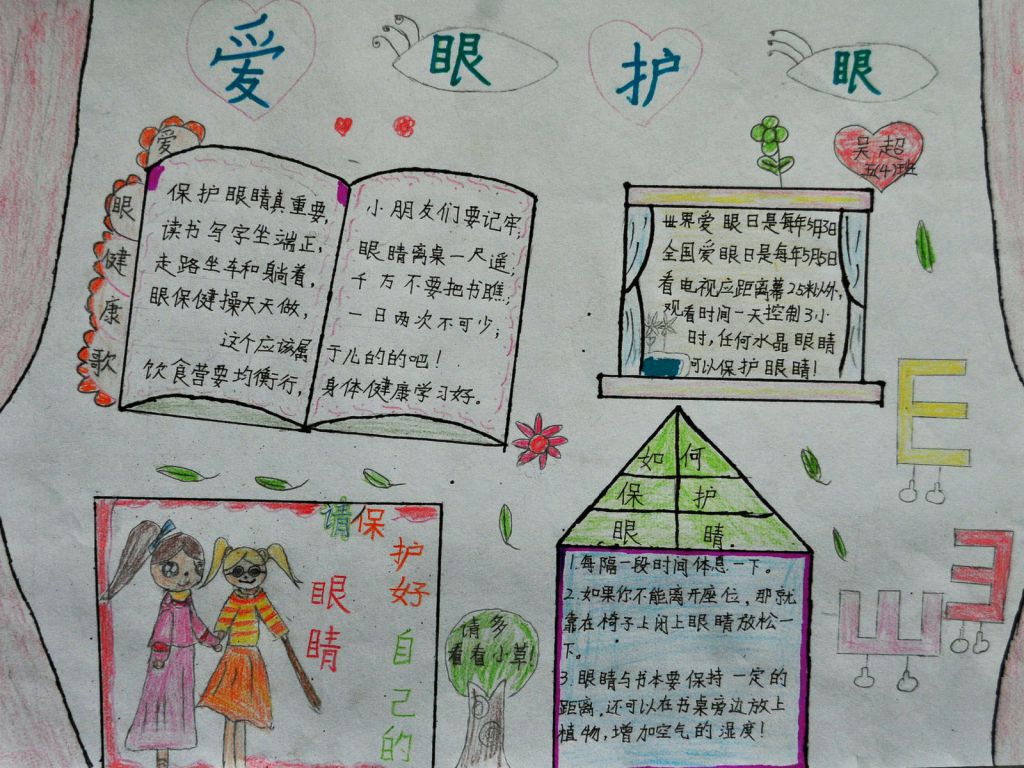 爱眼护眼
吴超
五(4)班
爱眼健康歌
保护眼睛真重要,
读书写字坐端正,
走路坐车和躺着,
眼保健操天天做,
这个应该属
饮食营要均衡行,
小朋友们要记牢;
眼睛离桌一尺遥;
千万不要把书瞧;
一日两次不可少;
于儿的的吧!
身体健康学习好。
世界爱眼日是每年5月3日
全国爱眼日是每年5月5日
看电视应距离幕2.5米以外,
观看时间一天控制3小
时,任何水晶眼睛
可以保护眼睛!
如何
保护
眼睛.
1.每隔一段时间休息一下。
2.如果你不能离开座位,那就
靠在椅子上闭上眼睛放松一
下。
3.眼睛与书本要保持一定的
距离,还可以在书桌旁边放上
植物,增加空气的湿度!
请保护好自己的
眼睛
请多
看看小草!
E
E
E